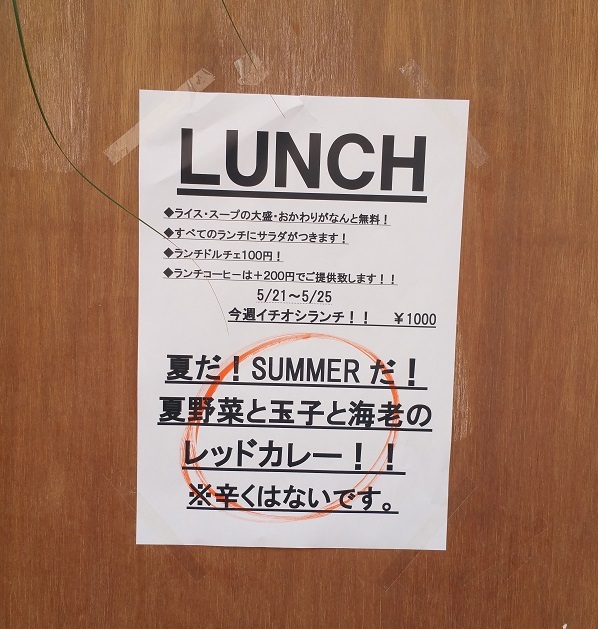 LUNCH
◆ライス・スープの大盛・おかわりがなんと無料！
◆すべてのランチにサラダがつきます！
◆ランチドルチェ100円！
◆ランチコーヒーは＋200円でご提供致します！！
5/21～5/25
今週イチオシランチ！！　￥1000
夏だ！SUMMERだ！
夏野菜と玉子と海老の
レッドカレー！！
※辛くはないです。